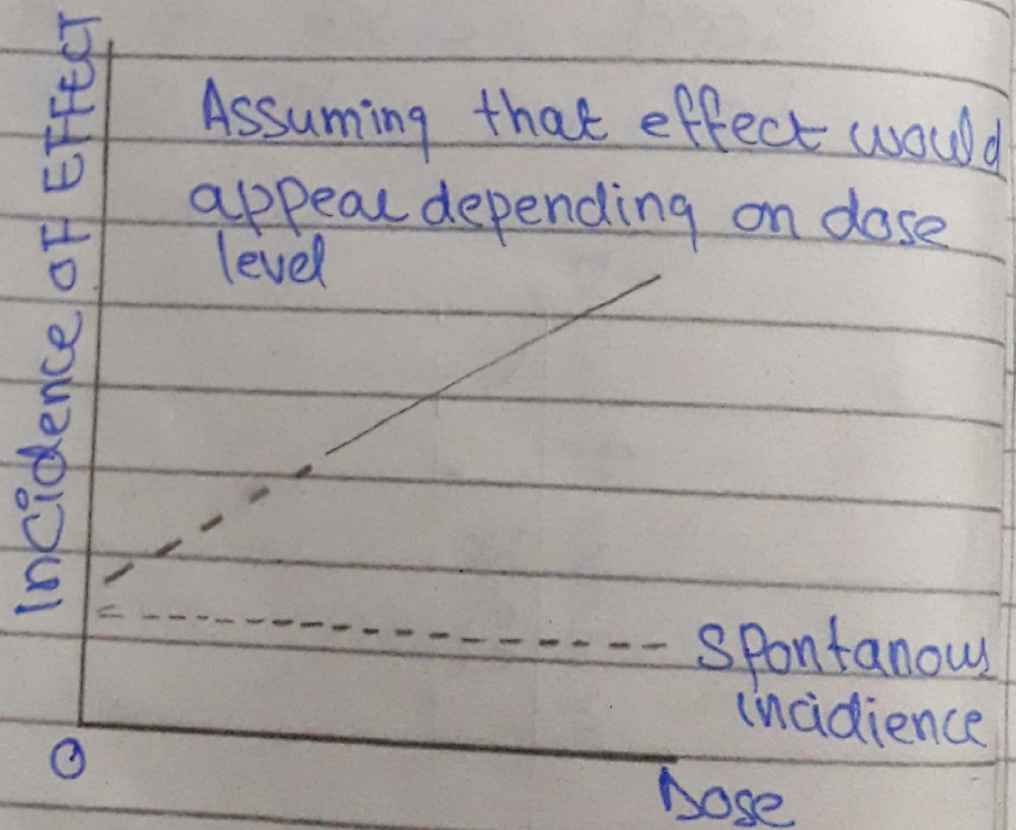 Incidence of Effect
Assuming that effect would
appear depending on dose
level
Spontanous
incidience
0
Dose